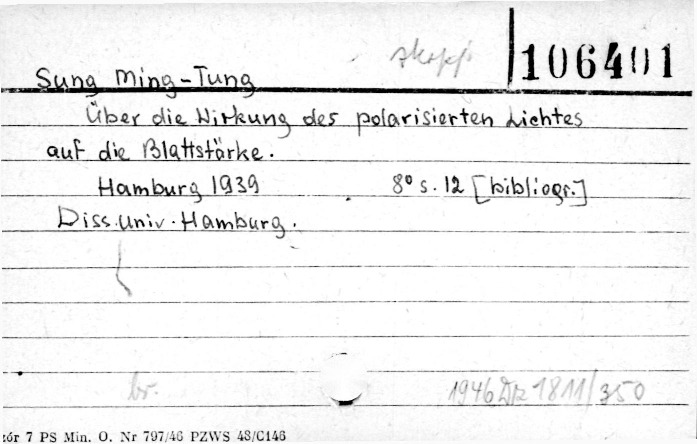 106401
Sung Ming-Tung
Über die Wirkung des polarisierten Lichtes
auf die Blattstärke.
Hamburg 1939 8° s. 12 [bibliogr.]
Diss. univ. Hamburg.
br. 1946 Dz 1811/350
zór 7 PS Min. O. Nr 797/46 PZWS 48/C146